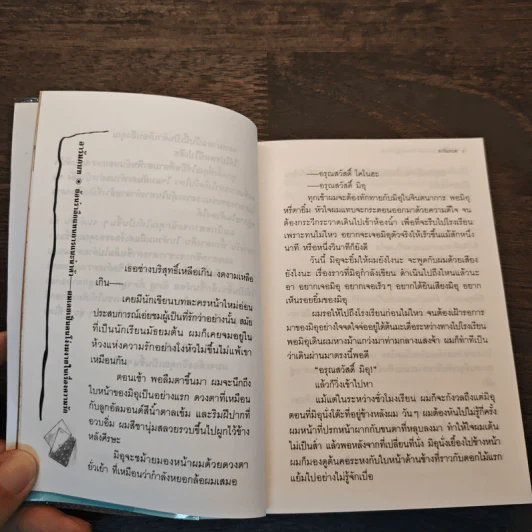 เธอช่างบริสุทธิ์เหลือเกิน งดงามเหลือ
เกิน——
เคยมีนักเขียนบทละครหน้าใหม่อ่อน
ประสบการณ์เอ่ยชมผู้เป็นที่รักว่าอย่างนั้น สมัย
ที่เป็นนักเรียนมัธยมต้น ผมก็เคยจมอยู่ใน
ห้วงแห่งความรักอย่างใจหัวไม่ขึ้นไม่แพ้เขา
เหมือนกัน
ตอนเช้า พอลืมตาขึ้นมา ผมจะนึกถึง
ใบหน้าของมิอุเป็นอย่างแรก ดวงตาที่เหมือน
กับลูกอัลมอนด์สีน้ำตาลเข้ม และริมฝีปากที่
อวบอิ่ม ผมสีชานุ่มสลวยรวบขึ้นไปผูกไว้ข้าง
หลังศีรษะ
มิอุจะชม้ายมองหน้าผมด้วยดวงตา
ยั่วเย้า ที่เหมือนว่ากำลังหยอกล้อผมเสมอ
——อรุณสวัสดิ์ โคโนฮะ
——อรุณสวัสดิ์ มิอุ
ทุกเช้าผมจะต้องทักทายกับมิอุในจินตนาการ พอมิอุ
หรี่ตายิ้ม หัวใจผมแทบจะกระดอนออกมาด้วยความดีใจ จน
ต้องกระวีกระวาดเดินไปเข้าห้องน้ำ เพื่อที่จะรีบไปโรงเรียน
เพราะทนไม่ไหว อยากจะเจอมิอุตัวจริงให้เร็วขึ้นแม้สักหนึ่ง
นาที หรือหนึ่งวินาทีก็ยังดี
วันนี้ มิอุจะยิ้มให้ผมยังไงนะ จะพูดกับผมด้วยเสียง
ยังไงนะ เรื่องราวที่มิอุกำลังเขียน ดำเนินไปถึงไหนแล้วนะ
อา อยากเจอมิอุ อยากเจอเร็วๆ อยากได้ยินเสียงมิอุ อยาก
เห็นรอยยิ้มของมิอุ
ผมรอให้ไปถึงโรงเรียนก่อนไม่ไหว จนต้องเฝ้ารอการ
มาของมิอุอย่างใจจดใจจ่ออยู่ใต้ต้นมะเดื่อระหว่างทางไปโรงเรียน
พอมิอุเดินผมหางม้าแกว่งมาท่ามกลางแสงเช้า ผมก็ทำทีว่า
เดินผ่านมาตรงนี้พอดี
“อรุณสวัสดิ์ มิอุ”
แล้วก็วิ่งเข้าไปหา
แม้แต่ในระหว่างชั่วโมงเรียน ผมก็จะกังวลถึงแต่มิอุ
ตอนที่มิอุนั่งโต๊ะที่อยู่ข้างหลังผม วันๆ ผมต้องหันไปไม่รู้กี่ครั้ง
ผมหน้าที่ปรกหน้าผากกับขนตาที่หลุบลงมา ทำให้ใจผมเต้น
ไม่เป็นส่ำ แล้วพอหลังจากที่เปลี่ยนที่นั่ง มิอุนั่งเยื้องไปข้างหน้า
ผมก็มองดูต้นคอระหงกับใบหน้าด้านข้างที่ราวกับดอกไม้แรก
แย้มไปอย่างไม่รู้จักเบื่อ